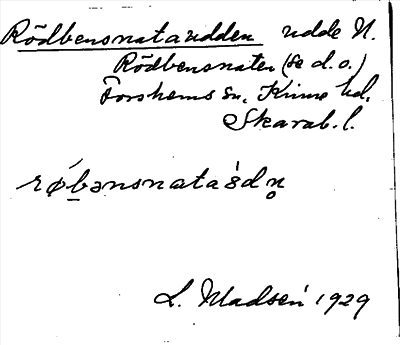 Rödbensnataudden udde N.
Rödbensnaten (se d. o.)
Forshems sn, Kinne hd,
Skarab. l.
rǿbənsnata`sdn̥
L. Madsén 1929